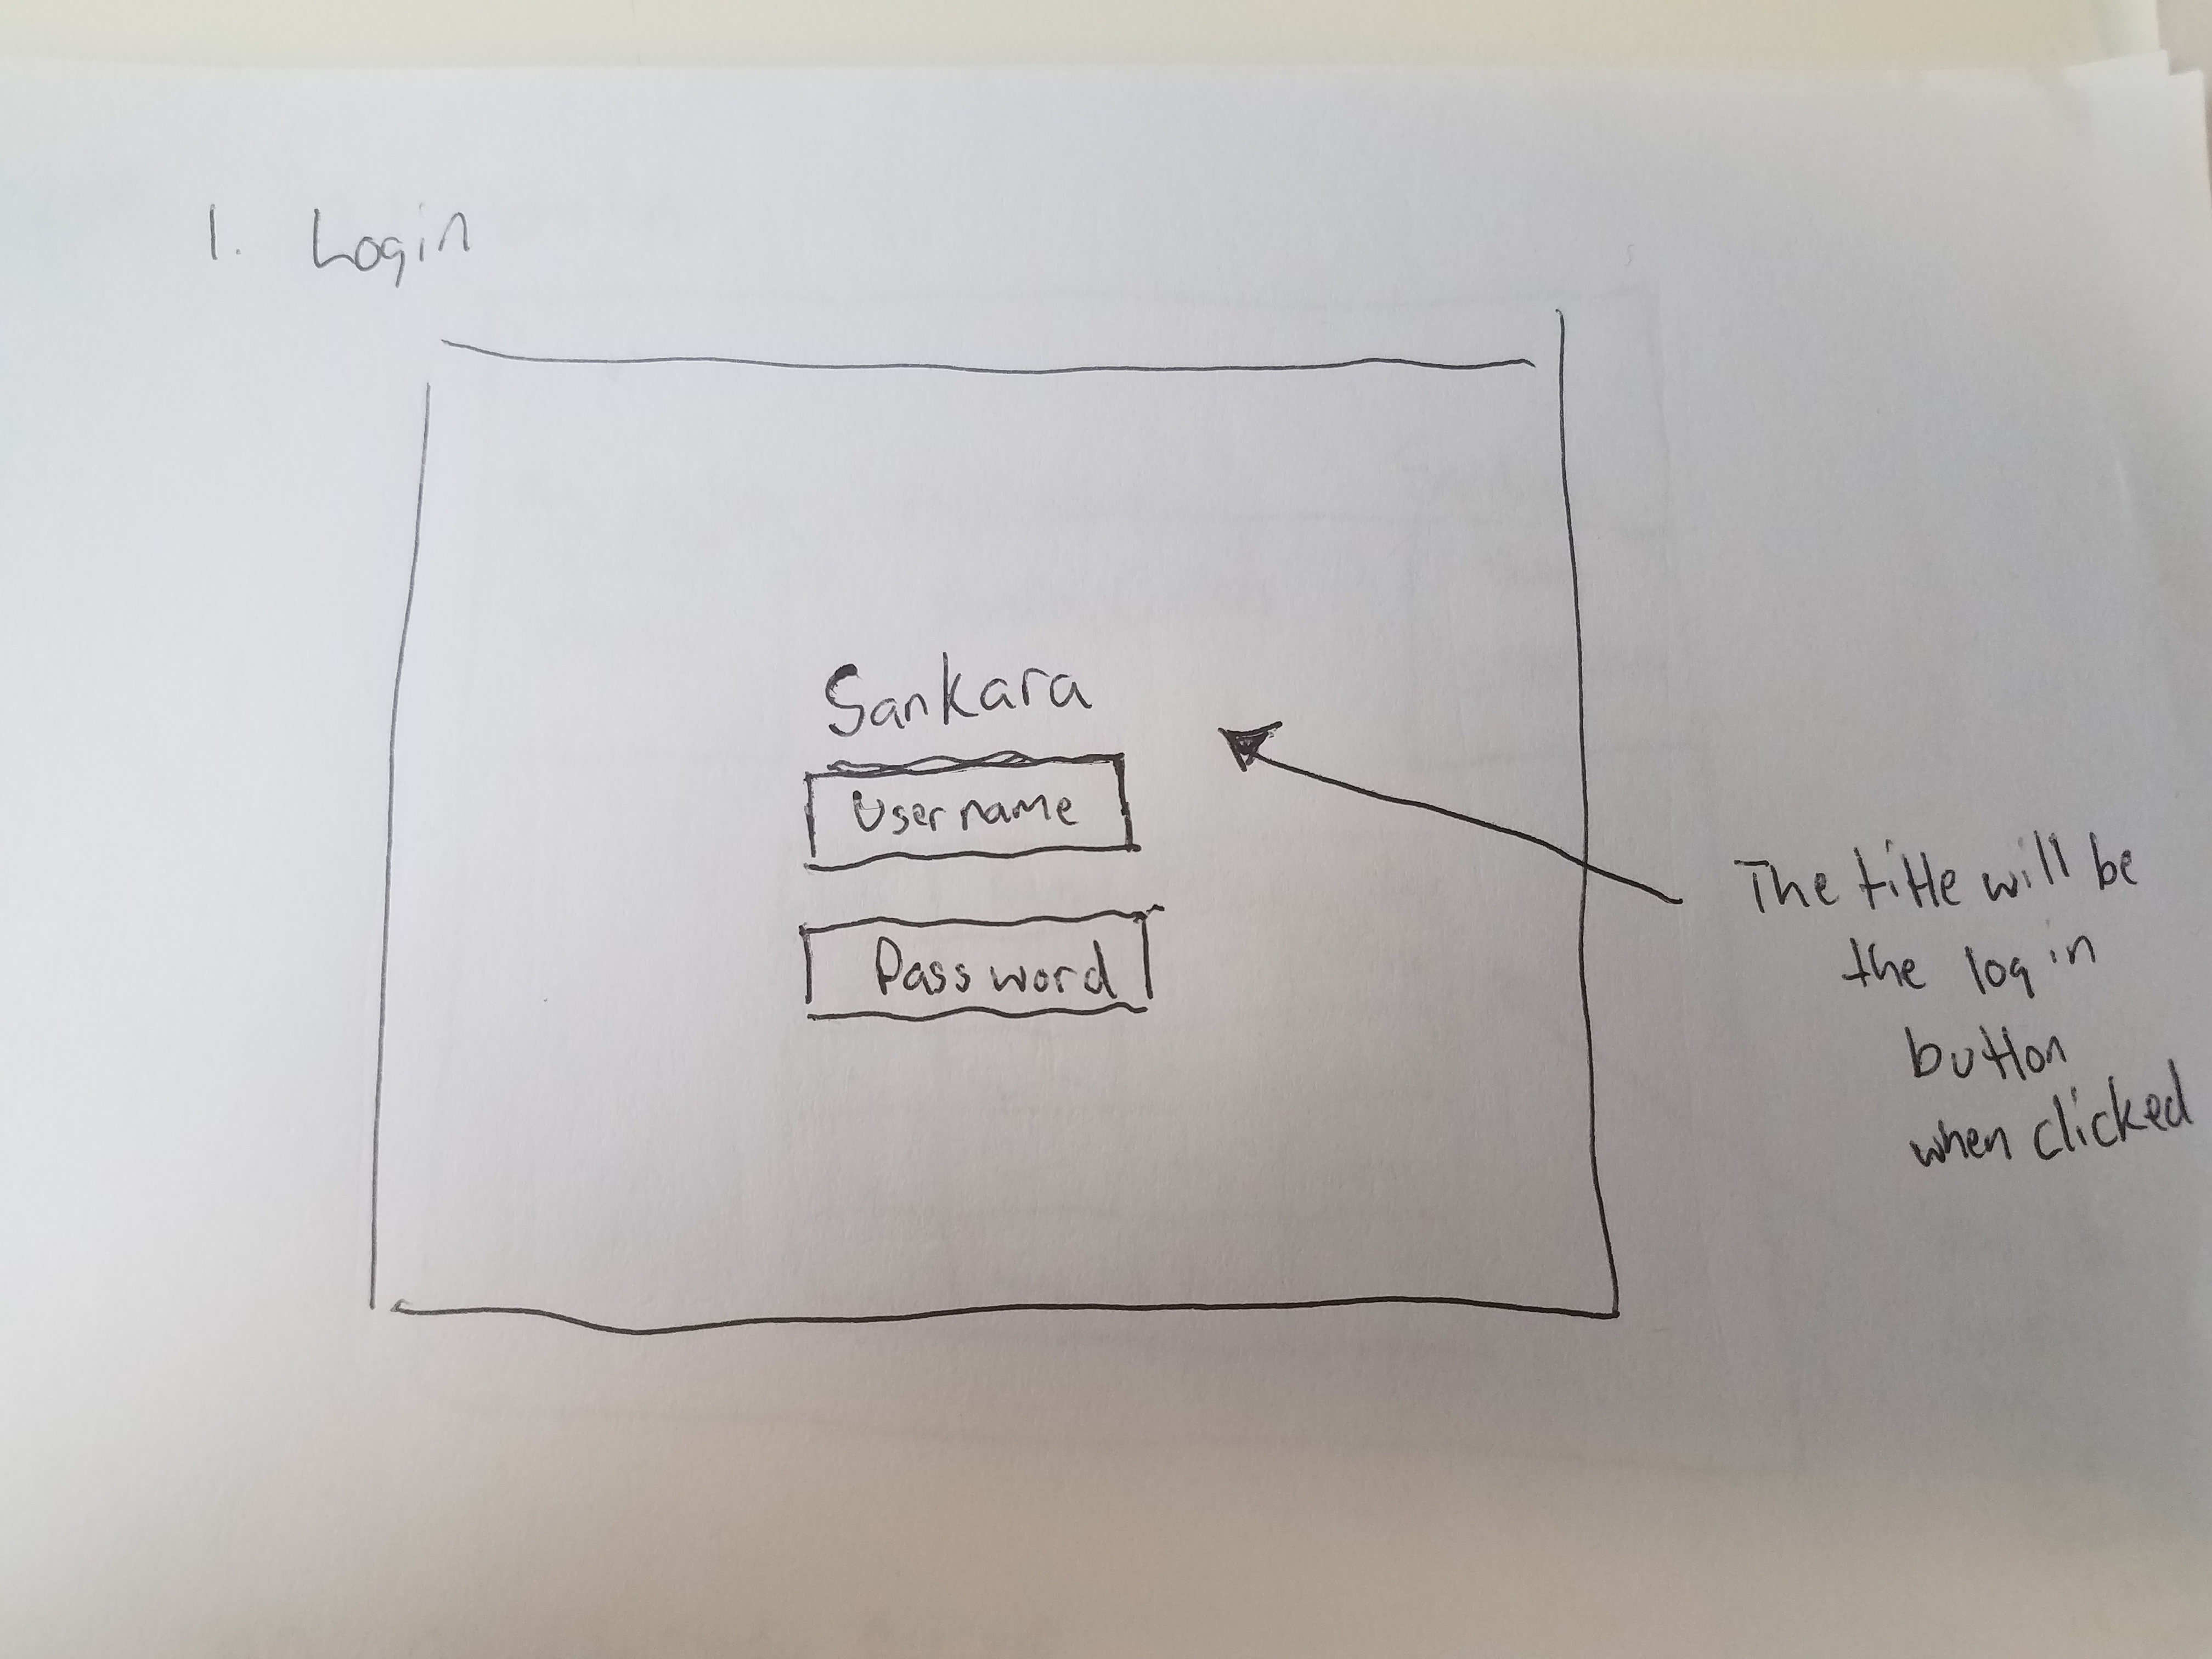 1. Login
Sankara
Username
Password
The title will be
the log in
button
when clicked